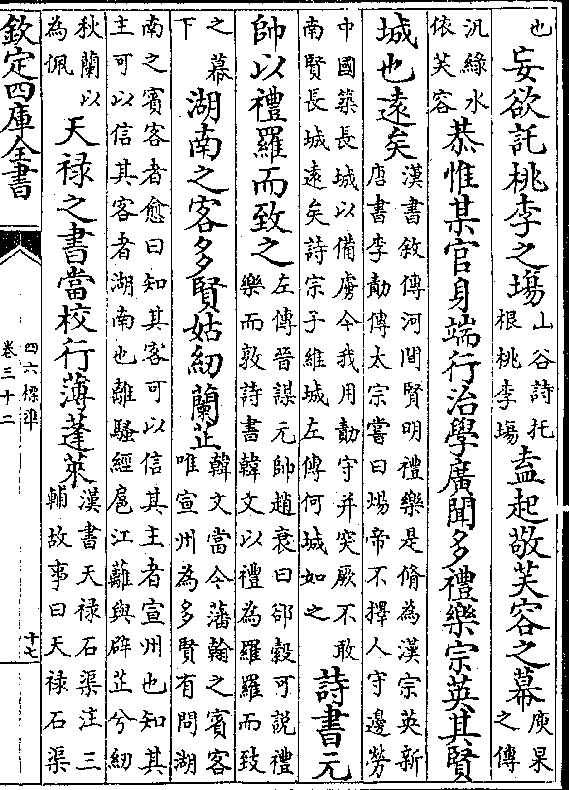 也
妄欲託桃李之塲
山谷詩托
根桃李塲
盍起敬芙容之幕
庾杲
之傳
汎緑水
依芙容
恭惟某官身端行治學廣聞多禮樂宗英其賢
城也遠矣
漢書敘傳河間賢明禮樂是脩為漢宗英新
唐書李勣傳太宗嘗曰煬帝不擇人守邊勞
中國築長城以備虜今我用勣守并突厥不敢
南賢長城遠矣詩宗子維城左傳何城如之
詩書元
帥以禮羅而致之
左傳晉謀元帥趙衰曰郤縠可説禮
樂而敦詩書韓文以禮為羅羅而致
之幕
下
湖南之客多賢姑紉蘭芷
韓文當今藩翰之賓客
唯宣州為多賢有問湖
南之賓客者愈曰知其客可以信其主者宣州也知其
主可以信其客者湖南也離騷經扈江蘺與辟芷兮紉
秋蘭以
為佩
天禄之書當校行薄蓬萊
漢書天禄石渠注三
輔故事曰天禄石渠
欽定四庫全書
四六標準
卷三十二
十七